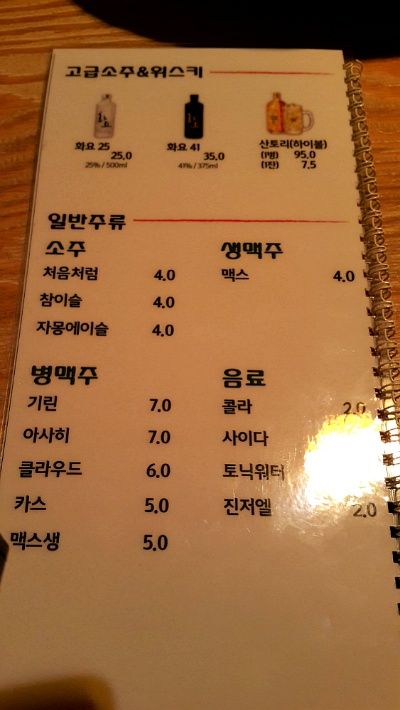 고급소주&위스키
화요 25 화요 41 산토리(하이볼)
25,0 35,0 (1병) 95,0
25% / 500ml 41% / 375ml (1잔) 7,5
일반주류
소주 생맥주
처음처럼 4.0 맥스 4.0
참이슬 4.0
자몽에이슬 4.0
병맥주 음료
기린 7.0 콜라 2.0
아사히 7.0 사이다
클라우드 6.0 토닉워터
카스 5.0 진저엘 2.0
맥스생 5.0